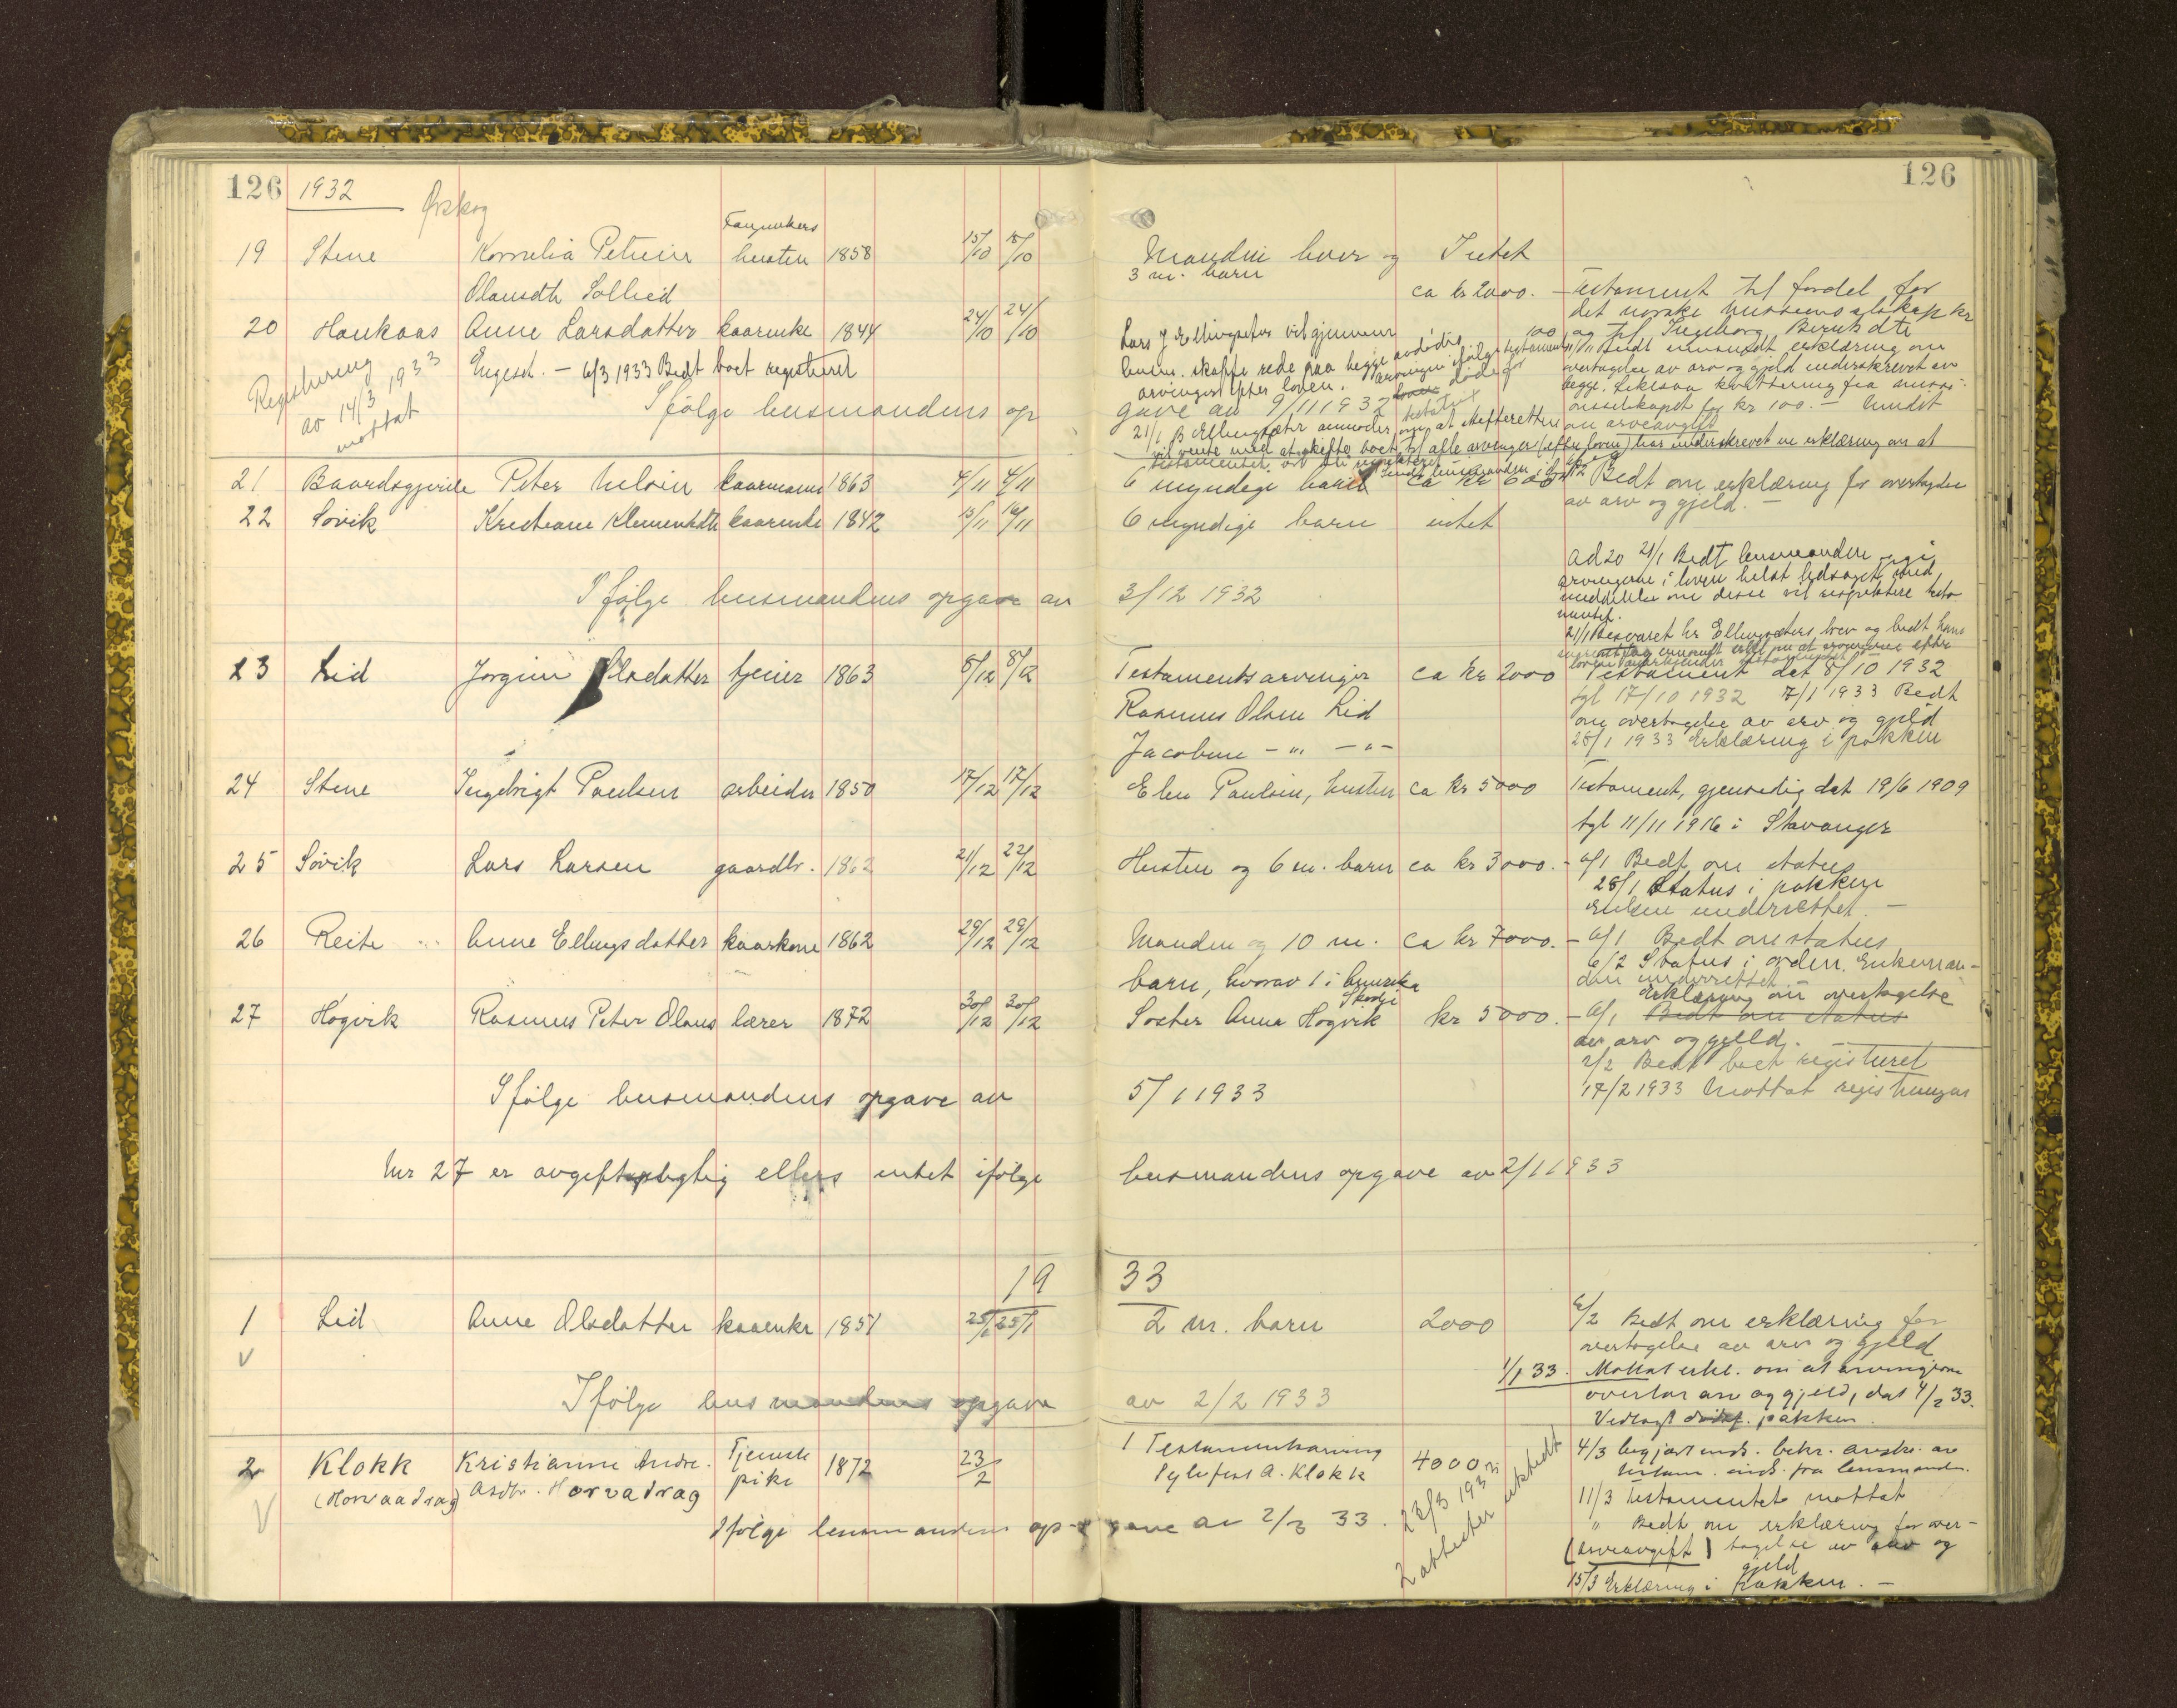 126 1932
Ørskog
126
19 Stene Kornelia Petrine hustru 1858 15/10 15/10 Manden lever og Intet
Olausdtr Sollied 3 m. barn
ca kr 2000. - Testament til fordel for
det norske missionsselskap kr
20 Haukaas Anne Larsdatter kaarenke 1844 24/10 24/10 Lars J Ellingsæter vil gjennem 100 og til Ingeborg Berntsdtr
Engeset. - 6/3 1933 Bedt boet registreret
Registrering
av 14/3 1933
mottat
lensm. skaffe rede paa begge avdødes
arvinger efter loven.
overtagelse av arv og gjeld underskrevet av
begge. Likesaa kvittering fra missi-
onsselskapet for kr 100. -
Ifølge lensmandens op
gave av 9/11 1932
21/1 B Ellingsæter anmoder om at skifteretten
vil vente med at skifte boet til alle arvinger (efter loven) har underskrevet en erklæring om at
21 Baardsgjerde Peter Nelsen kaarmann 1863 4/11 4/11 6 myndige barn ca kr 600 Bedt om erklæring for overtagelse
av arv og gjeld. -
22 Søvik Kristiane Klementsdtr kaarenke 1842 15/11 16/11 6 myndige barn intet
Ifølge lensmandens opgave av 3/12 1932
ad 20 21/1 Bedt lensmanden opgi
arvingerne i loven helst ledsaget med
meddelelse om disse vil respektere testa
mentet.
21/1 Besvaret hr Ellingsæters brev og bedt ham
23 Lid Jørgine Olsdatter tjener 1863 8/12 8/12 Testamentsarvinger ca kr 2000 Testament dat 8/10 1932
Rasmus Olsen Lid tgl 17/10 1932 7/1 1933 Bedt
om overtagelse av arv og gjeld
Jacobine - " - " - 28/1 1933 Erklæring i pakken
24 Stene Ingebrigt Paulsen arbeider 1850 17/12 17/12 Elen Paulsen, hustru ca kr 5000 Testament, gjensidig dat 19/6 1909
tgl 11/11 1916 i Stavanger
25 Søvik Lars Larsen gaardbr. 1862 21/12 22/12 Hustru og 6 m. barn ca kr 3000. - 6/1 Bedt om status
28/1 Status i pakken
Enken underrettet. -
26 Reite Anne Ellingsdatter kaarkone 1862 29/12 29/12 Manden og 10 m. ca kr 7000. - 6/1 Bedt om status
barn, hvorav 1 i Amerika 6/2 Status i orden. Enkeman-
den underrettet
Erklæring om overtagelse
27 Høgvik Rasmus Peter Olaus lærer 1872 30/12 30/12 Søster Anna Høgvik Skodje kr 5000. - 6/1 Bedt om status
av arv og gjeld.
2/2 Bedt boet registreret
Ifølge lensmandens opgave av 5/1 1933 17/2 1933 Mottat registreringen
Nr 27 er avgiftspligtig ellers intet ifølge lensmandens opgave av 2/1 1933
19 33
1 Lid Anne Olsdatter kaarenke 1851 25/1 25/1 2 m. barn 2000 6/2 Bedt om erklæring for
overtagelse av arv og gjeld
1/1 33. Mottat erkl. om at arvingerne
Ifølge lensmandens opgave av 2/2 1933
overtar arv og gjeld, dat 4/2 33.
Vedlagt dødsf. pakken.
2 Klokk Kristianne Andre- Tjeneste 1872 23/2 1 Testamentsarving 4000 4/3 begjært inds. bekr. avskr. av
(Horvaadrag) asdtr. Horvadrag pike Sylvfest A. Klokk testam. inds. fra lensmanden.
23/3 1933
2 attester utstedt
11/3 Testamentet mottat
Ifølge lensmandens op- gave av 2/3 33.
" Bedt om erklæring for over-
(arveavgift) tagelse av arv og
gjeld
15/3 Erklæring i pakken. -